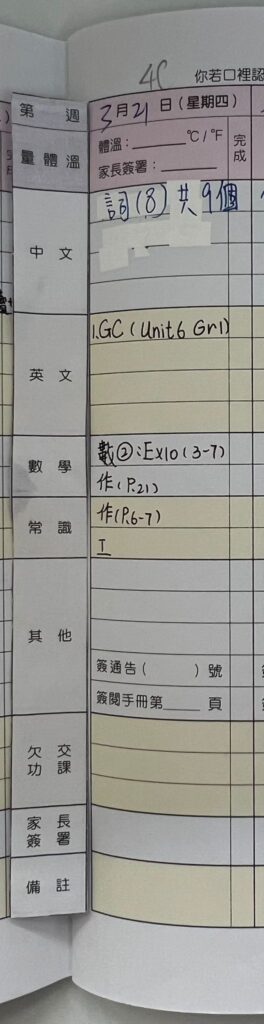 4C
你若口裡認
第 週
3月21日(星期四)
量體溫
體溫:______°C/°F
家長簽署:______
完成
中文
詞(8)共9個
英文
1.GC(Unit6 Gr1)
數學
數②:Ex10(3-7)
作(P.21)
常識
作(P.6-7)
I
其他
簽通告( )號
簽閱手冊第____頁
欠交功課
家長簽署
備註